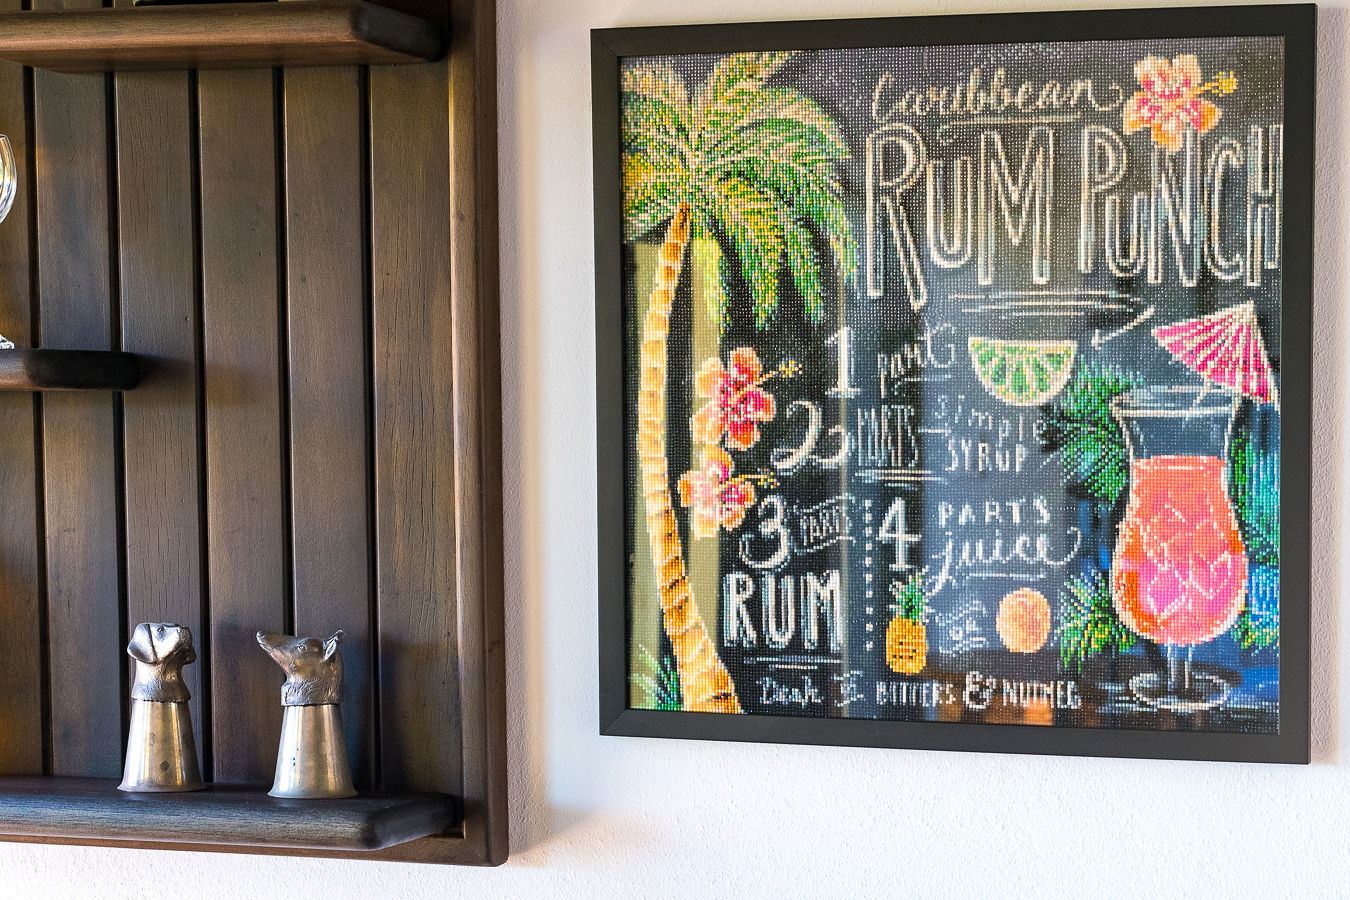 Caribbean
RUM PUNCH
1 part
2 PARTS SIMPLE SYRUP
3 PARTS RUM
4 PARTS juice
BITTERS & NUTMEG